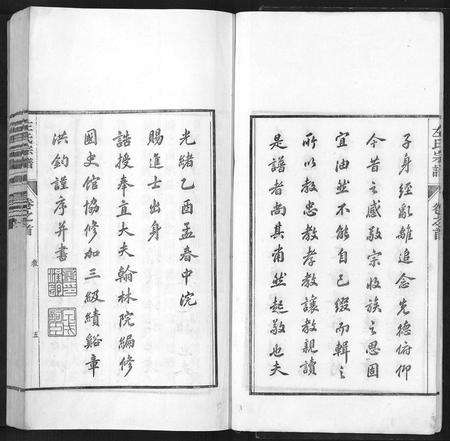 左氏宗譜
卷之首
子身經亂離追念先德俯仰
今昔之感敬宗收族之思固
宜油然不能自已綴而輯之
所以教忠教孝教讓教親讀
是譜者尚其肅然起敬也夫
光緒乙酉孟春中浣
賜進士出身
誥授奉直大夫翰林院編修
國史館協修加三級績谿章
洪鈞謹序并書
左氏宗譜
卷之首
五